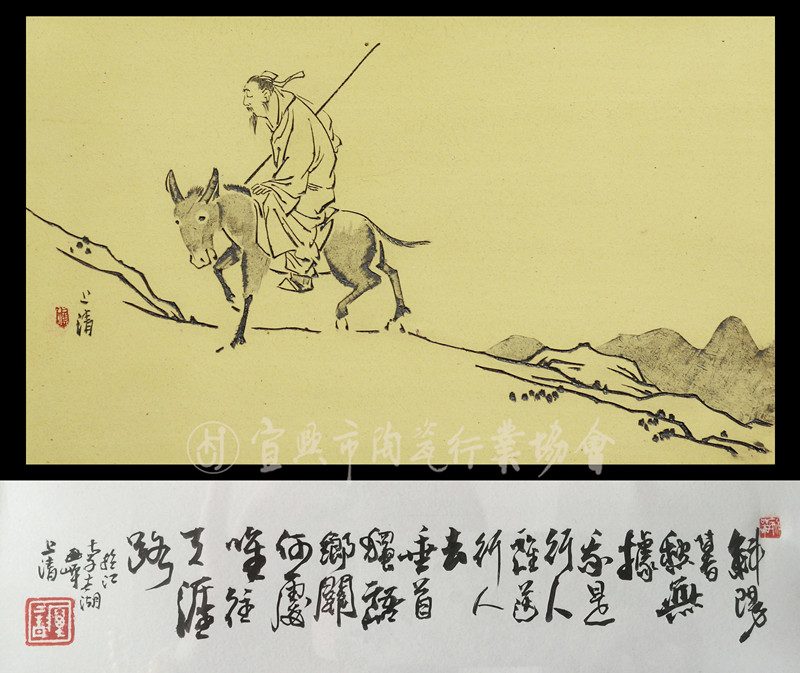 上清
宜興市陶瓷行業協會
斜陽
暮
秋無
據
我是
行人
送
行人
去
垂首
獨語
鄉關
何處
唯往
天涯
路
湖
上清